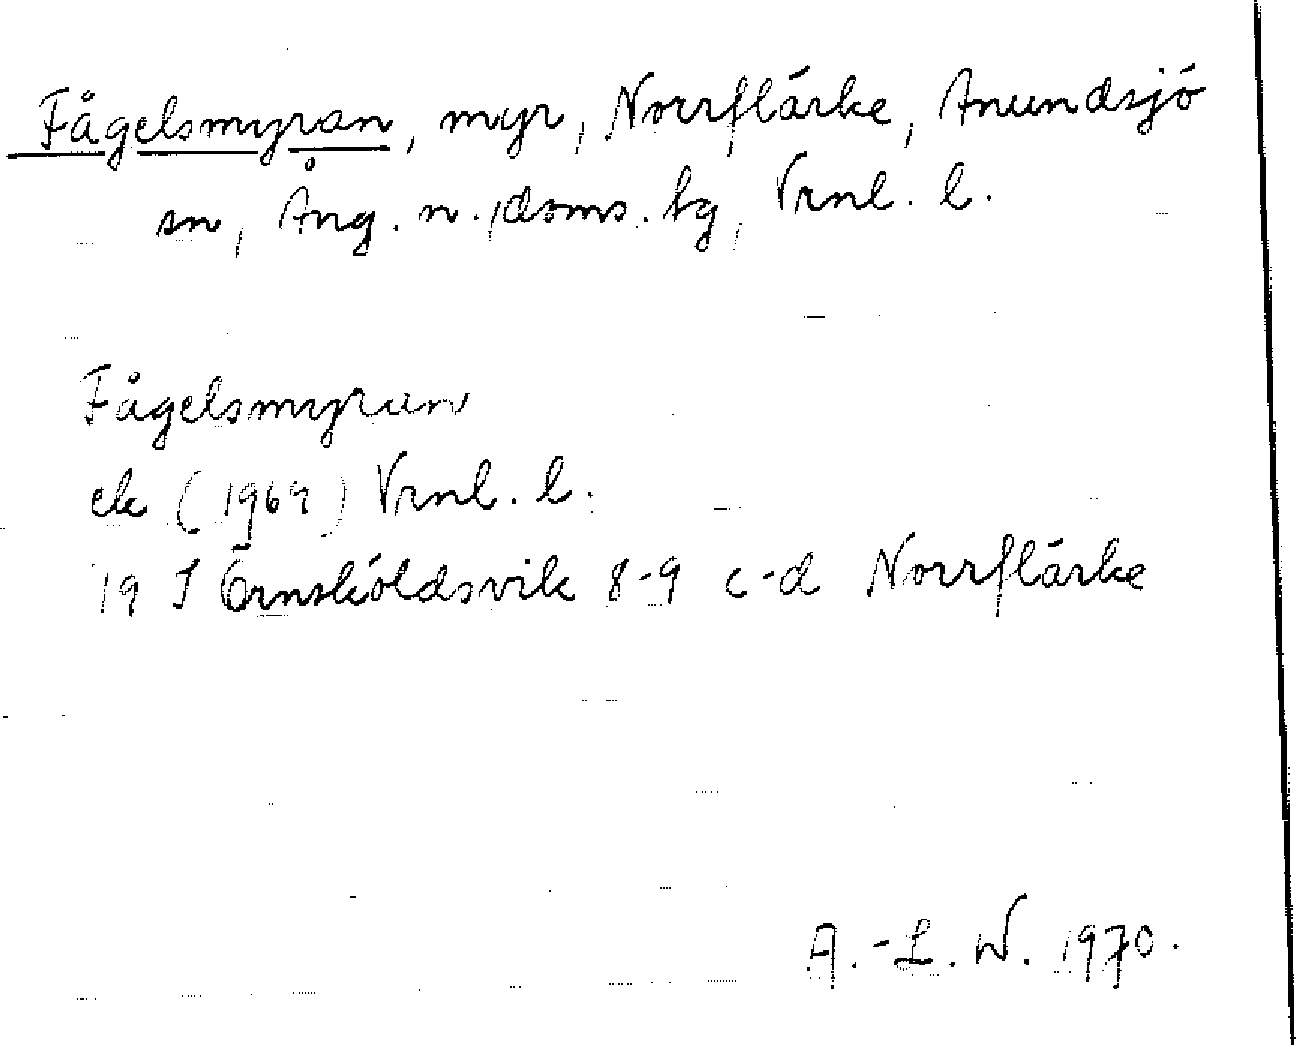 Fågelsmyran, myr, Norrflärke, Anundsjö
sn, Ång. n. doms. tg, Vrnl. l.
Fågelsmyran
ek (1969) Vrnl. l.
19 J Örnsköldsvik 8-9 c-d Norrflärke
A.-L. W. 1970.